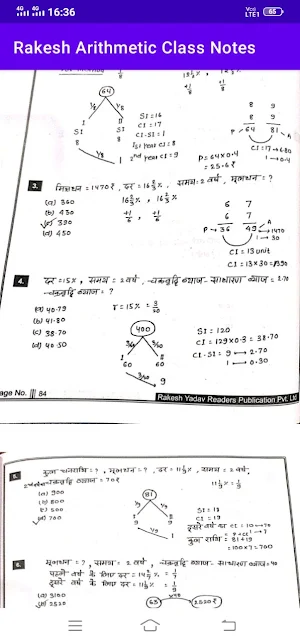 16:36
Rakesh Arithmetic Class Notes
64
1/8
1/8
SI
SI
8
8
1/8
SI = 16
CI = 17
CI-SI = 1
1st year CI = 8
2nd year CI = 9
8 9
8 9
P → 64 81 → A
P = 64×0.4
= 25.6 ₹
3. मिश्रधन = 1470₹, दर = 16⅔%, समय = 2 वर्ष, मूलधन = ?
(a) 360
(b) 430
(c) 390
(d) 450
16⅔%, 16⅔%
6 7
6 7
P → 36 49 → 1470
1 → 30
CI = 13 unit
CI = 13×30 = ₹390
4. दर = 15%, समय = 2 वर्ष, चक्रवृद्धि ब्याज - साधारण ब्याज = 2.70
चक्रवृद्धि ब्याज = ?
(a) 40.79
(b) 41.80
(c) 38.70
(d) 40.50
r = 15% = 3/20
400
3/20
60
60
3/20
9
SI = 120
CI = 129×0.3 = 38.70
CI-SI = 9 → 2.70
1 → 0.30
age No. 84
Rakesh Yadav Readers Publication Pvt. Ltd
5.
दर = 11⅑%, समय = 2 वर्ष,
(a) 900
(b) 800
(c) 500
(d) 700
11⅑% = 1/9
81
1/9
1/9
9
9
1/9
SI = 18
CI = 19
दूसरे वर्ष का CI = 10 → 70
= 100×7 = 700
6. मूलधन = ?, समय = 2 वर्ष,
पहले वर्ष के लिए दर = 14 2/7% = 1/7
दूसरे वर्ष के लिए दर = 11⅑% = 1/9
(a) 3100
(b) 2520
63
×40
2520₹